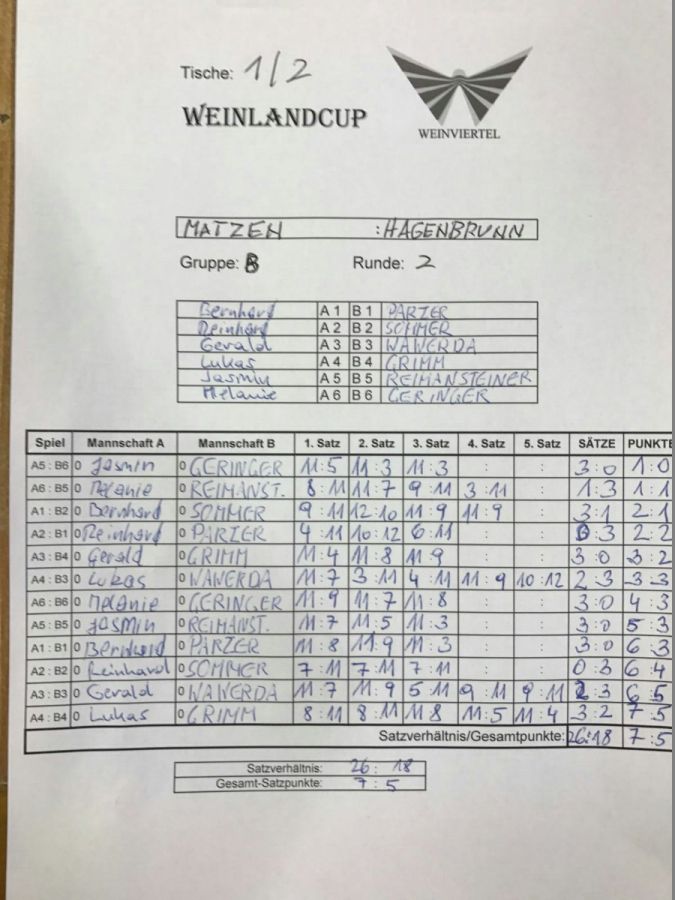 Tische: 1/2
WEINLANDCUP
WEINVIERTEL
MATZEN : HAGENBRUNN
Gruppe: B Runde: 2
Bernhard A 1 B 1 PARZER
Reinhard A 2 B 2 SOMMER
Gerald A 3 B 3 WAWERDA
Lukas A 4 B 4 GRIMM
Jasmin A 5 B 5 REIMANSTEINER
Melanie A 6 B 6 GERINGER
Spiel Mannschaft A Mannschaft B 1. Satz 2. Satz 3. Satz 4. Satz 5. Satz SÄTZE PUNKTE
A5 : B6 0 Jasmin 0 GERINGER 11 : 5 11 : 3 11 : 3 : : 3 : 0 1 : 0
A6 : B5 0 Melanie 0 REIMANST. 8 : 11 11 : 7 9 : 11 3 : 11 : 1 : 3 1 : 1
A1 : B2 0 Bernhard 0 SOMMER 9 : 11 12 : 10 11 : 9 11 : 9 : 3 : 1 2 : 1
A2 : B1 0 Reinhard 0 PARZER 4 : 11 10 : 12 6 : 11 : : 0 : 3 2 : 2
A3 : B4 0 Gerald 0 GRIMM 11 : 4 11 : 8 11 : 9 : : 3 : 0 3 : 2
A4 : B3 0 Lukas 0 WAWERDA 11 : 7 3 : 11 4 : 11 11 : 9 10 : 12 2 : 3 3 : 3
A6 : B6 0 Melanie 0 GERINGER 11 : 9 11 : 7 11 : 8 : : 3 : 0 4 : 3
A5 : B5 0 Jasmin 0 REIMANST. 11 : 7 11 : 5 11 : 3 : : 3 : 0 5 : 3
A1 : B1 0 Bernhard 0 PARZER 11 : 8 11 : 9 11 : 3 : : 3 : 0 6 : 3
A2 : B2 0 Reinhard 0 SOMMER 7 : 11 7 : 11 7 : 11 : : 0 : 3 6 : 4
A3 : B3 0 Gerald 0 WAWERDA 11 : 7 11 : 9 5 : 11 9 : 11 9 : 11 2 : 3 6 : 5
A4 : B4 0 Lukas 0 GRIMM 8 : 11 8 : 11 11 : 8 11 : 5 11 : 4 3 : 2 7 : 5
Satzverhältnis/Gesamtpunkte: 26 : 18 7 : 5
Satzverhältnis: 26 : 18
Gesamt-Satzpunkte: 7 : 5